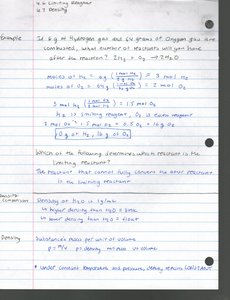 4.6 Limiting Reagent
4.7 Density
Example
If 6 g of Hydrogen gas and 64 grams of Oxygen gas are
combusted, what number of reactants will you have
after the reaction? 2H₂ + O₂ → 2H₂O
moles of H₂ = 6g (1 mol H₂ / 2g H₂) = 3 mol H₂
moles of O₂ = 64g (1 mol O₂ / 32g O₂) = 2 mol O₂
3 mol H₂ (1 mol O₂ / 2 mol H₂) = 1.5 mol O₂
H₂ is limiting reagent, O₂ is excess reagent
2 mol O₂ - 1.5 mol O₂ = 0.5 O₂ = 16g O₂
0g of H₂, 16g of O₂
Which of the following determines which reactant is the
limiting reactant?
The reactant that cannot fully convert the other reactants
is the limiting reactant
Density
Comparison
Density of H₂O is 1g/mL
↳ higher density than H₂O = sink
↳ lower density than H₂O = float
Density
Substance's mass per unit of volume
ρ = m/V ρ: density m: mass v: volume
* Under constant temperature and pressure, density remains constant